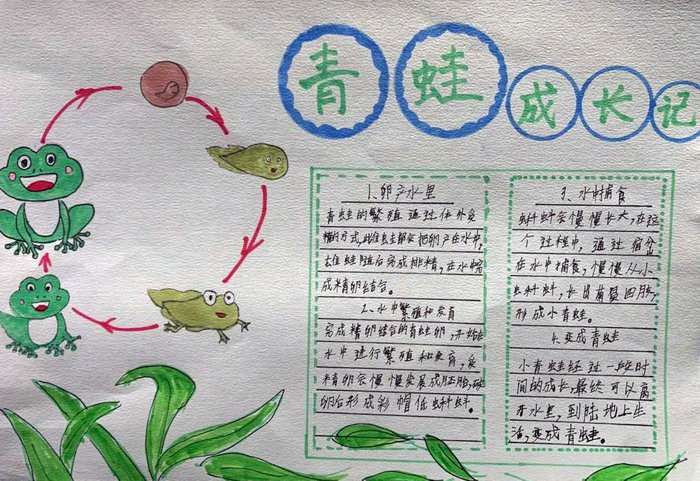 青蛙成长记
1.卵产水里
青蛙的繁殖通过体外受
精的方式,此雌蛙都会把卵产在水中,
雄蛙随后完成排精,在水中完
成精卵结合。
2.水中繁殖和发育
完成精卵结合的青蛙卵,开始在
水中进行繁殖和发育,受
精卵会慢慢发展成胚胎,
形成
蝌蚪。
3.水中捕食
蝌蚪会慢慢长大,在这
个过程中,通过
在水中捕食,慢慢从小
蝌蚪,长出前后四肢,
形成小青蛙。
4.变成青蛙
小青蛙经过一段时
间的成长,最终可以离
开水里,到陆地上生
活,变成青蛙。